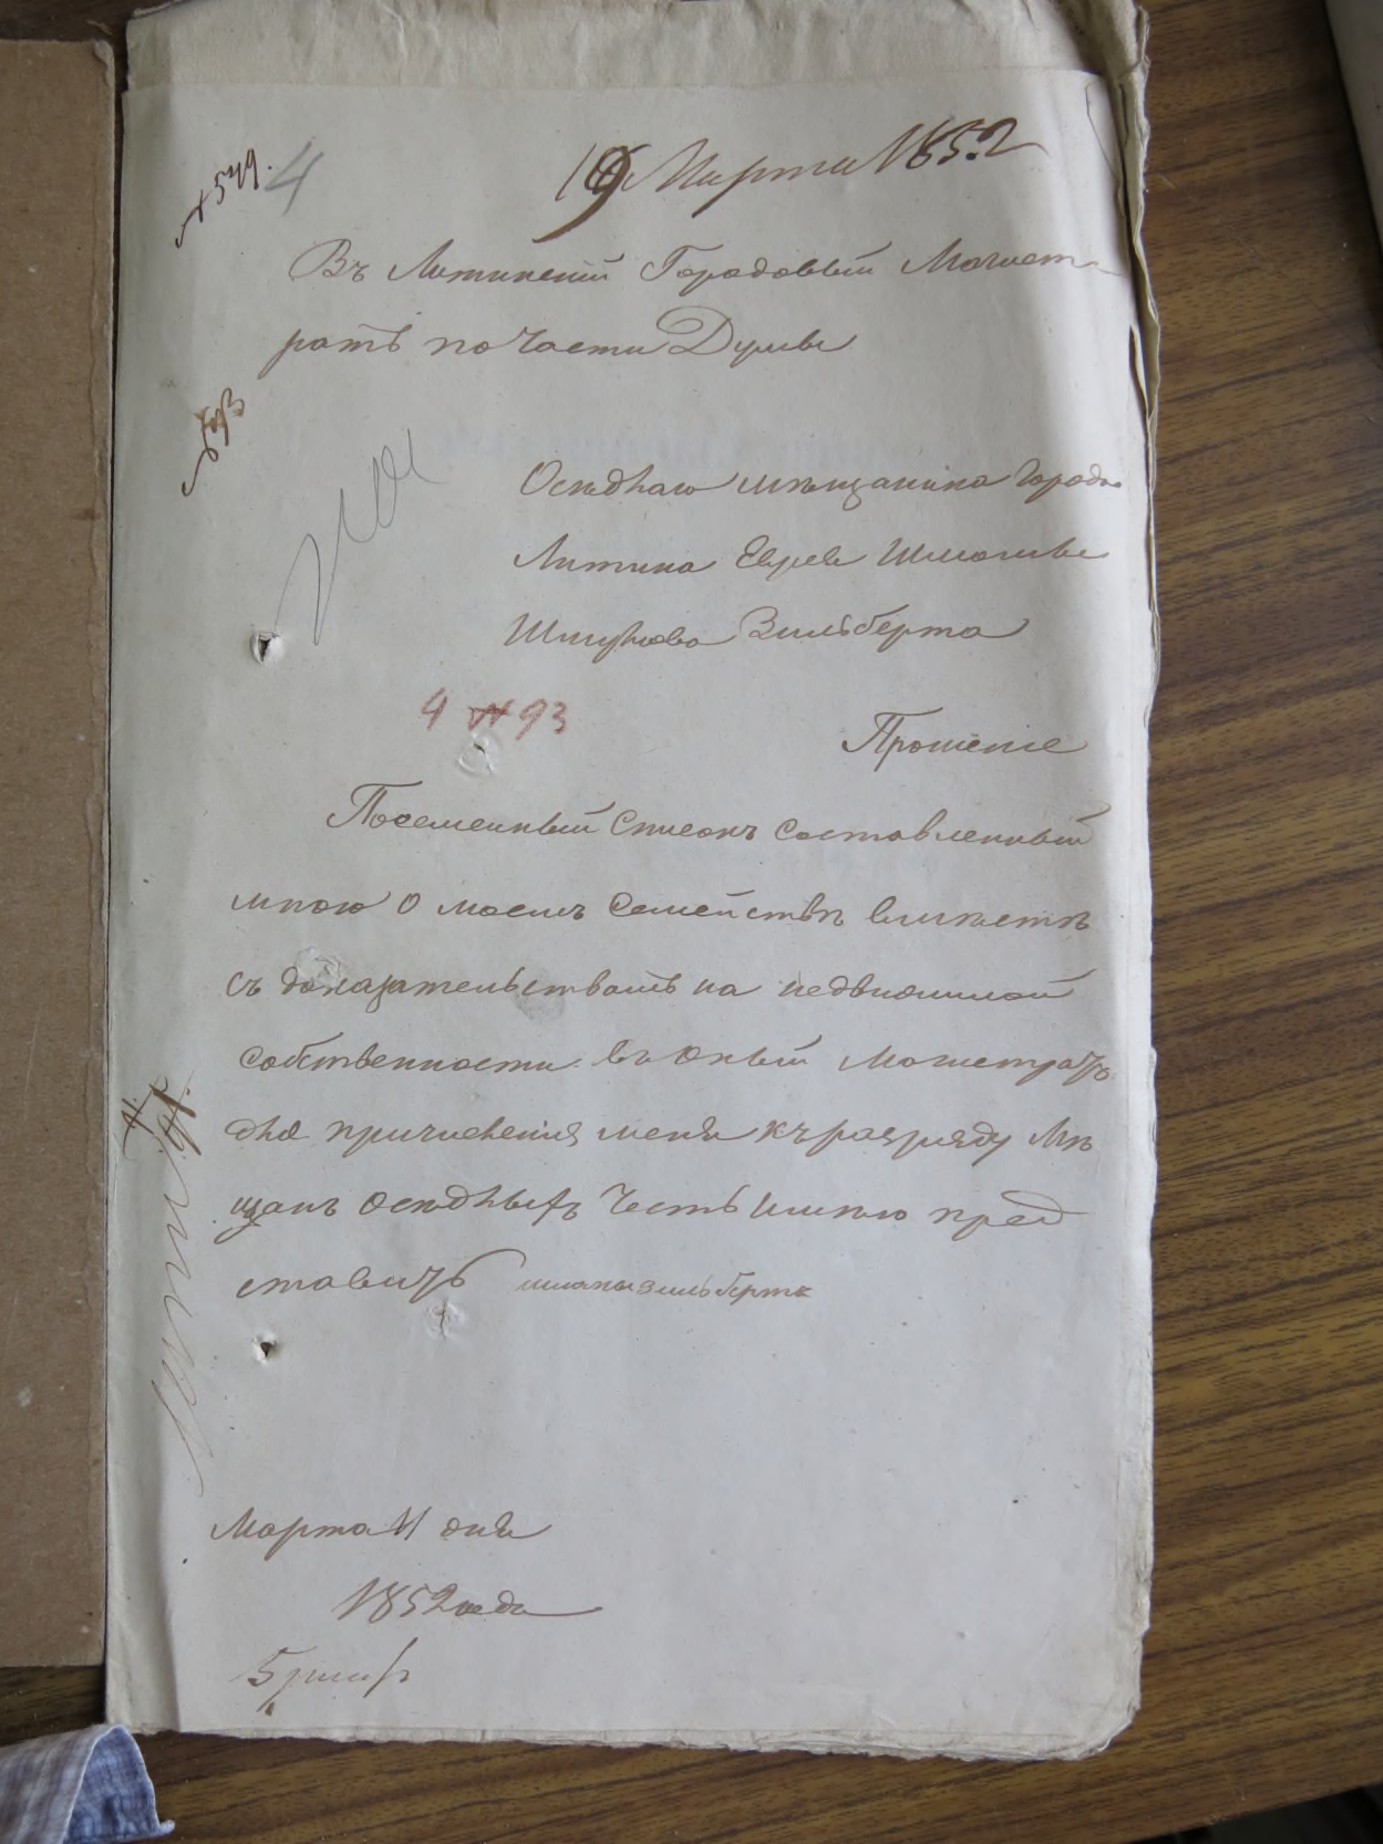 № 549.
4
19 Марта 1852
Въ Литинскій Городовый Магист-
ратъ по части Думы
Осѣдлаго мѣщанина города
Литина Еврея Шмоиля
Зильберта
4 № 93
Прошеніе
Посемейный Списокъ составленный
мною о моемъ Семействѣ вмѣстѣ
съ доказательствомъ на недвижимой
собственности въ оный Магистратъ
для причисления меня къ разряду Мѣ
щанъ осѣдлыхъ Честь имѣю пред
ставить зильбертъ
Марта 11 дня
1852 года